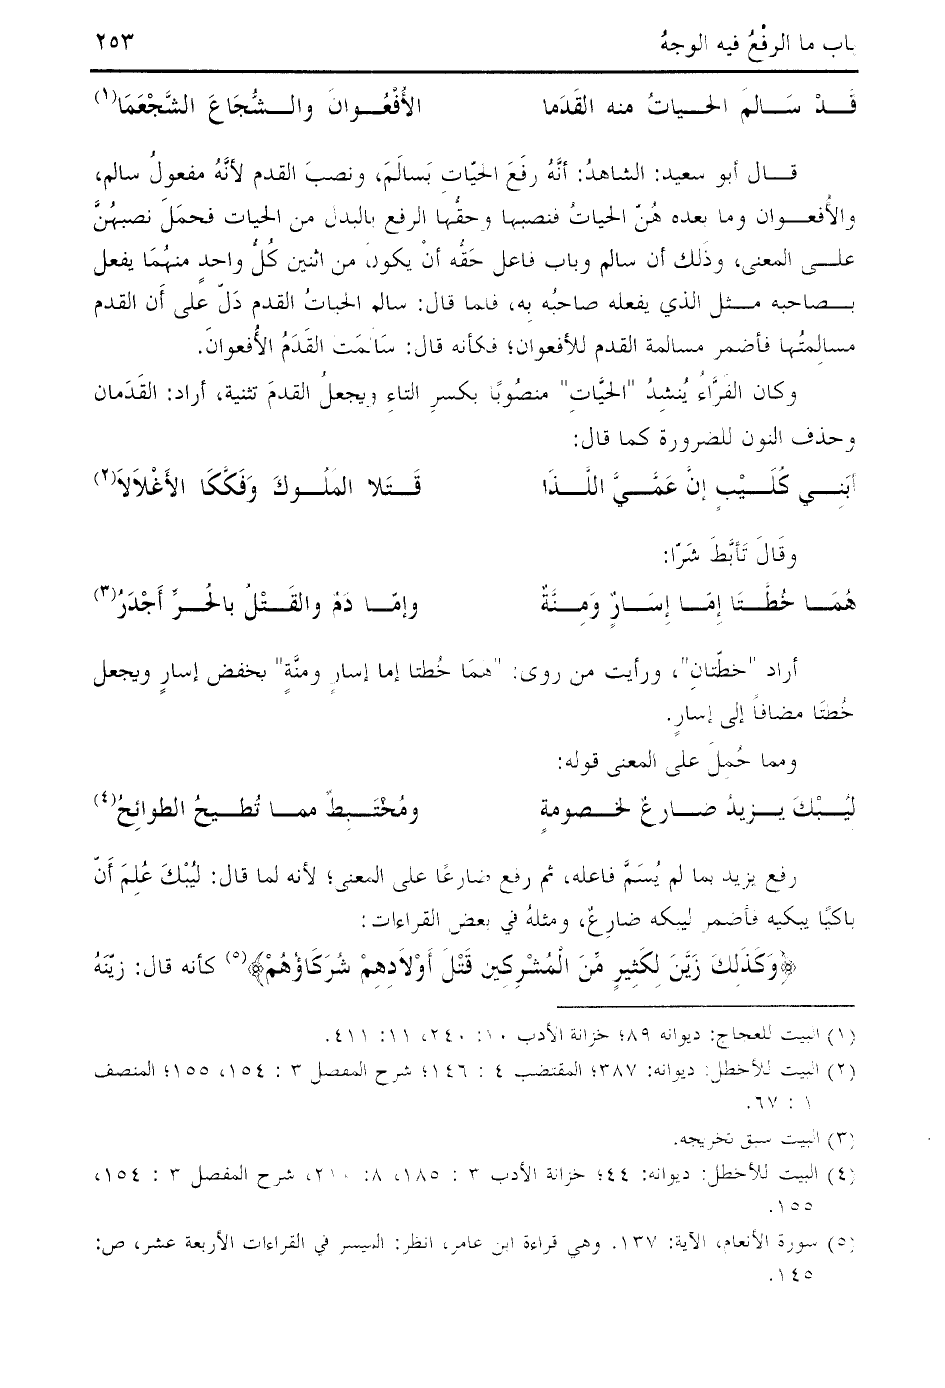 باب ما الرفْعُ فيه الوجهُ ٢٥٣
قَدْ سَالَمَ الحياتُ منه القَدَما الأُفْعُوانَ والشُّجَاعَ الشَّجْعَمَا(١)
قال أبو سعيد: الشاهدُ: أنَّهُ رفَعَ الحيّاتِ بَسالَمَ، ونصبَ القدم لأنَّهُ مفعولُ سالم،
والأُفعوان وما بعده هُنّ الحياتُ فنصبها وحقُّها الرفع بالبدل من الحيات فحمَلَ نصبهُنَّ
على المعنى، وذلك أن سالم وباب فاعل حَقُه أنْ يكون من اثنين كُلُّ واحدٍ منهُمَا يفعل
بصاحبه مثل الذي يفعله صاحبُه به، فلما قال: سالم الحياتُ القدم دَلّ على أن القدم
مسالمتُها فأضمر مسالمة القدم للأفعوان؛ فكأنه قال: سَالمَت القَدَمُ الأُفعوانَ.
وكان الفَرَّاءُ يُنشدُ "الحيَّات" منصُوبًا بكسرِ التاءِ ويجعلُ القدمَ تثنية، أراد: القَدَمان
وحذف النون للضرورة كما قال:
أبَنِي كُلَيْبٍ إنَّ عَمَّيَّ اللَّذَا قَتَلا المُلُوكَ وَفَكَّكَا الأَغْلاَلاَ(٢)
وقَالَ تَأبَّطَ شَرّا:
هُمَا خُطَّتَا إمَا إسَارٌ وَمِنَّةٌ وإمّا دَمٌ والقَتْلُ بالحُرِّ أَجْدَرُ(٣)
أراد "خطّتانِ"، ورأيت من روى: "همَا خُطتا إما إسارٍ ومنَّةٍ" بخفض إسارٍ ويجعل
خُطتَا مضافاً إلى إسارٍ.
ومما حُملَ على المعنى قوله:
لِيُبْكَ يزيدُ ضارعٌ لخصومةٍ ومُخْتَبطٌ مما تُطيحُ الطوائِحُ(٤)
رفع يزيد بما لم يُسَمَّ فاعله، ثم رفع ضارعًا على المعنى؛ لأنه لما قال: ليُبْكَ عُلمَ أَنّ
باكيًا يبكيه فأضمر ليبكه ضارعٌ، ومثلهُ في بعض القراءات:
﴿وَكَذَلكَ زُيِّنَ لكَثيرٍ مِّنَ الْمُشْركين قَتْلَ أَوْلادهمْ شُرَكَاؤُهُمْ﴾(٥) كأنه قال: زيّنَهُ
(١) البيت للعجاج: ديوانه ٨٩؛ خزانة الأدب ١٠: ٢٤٠، ١١: ٤١١.
(٢) البيت للأخطل: ديوانه: ٣٨٧؛ المقتضب ٤ : ١٤٦؛ شرح المفصل ٣ : ١٥٤، ١٥٥؛ المنصف
١ : ٦٧.
(٣) البيت سبق تخريجه.
(٤) البيت للأخطل: ديوانه: ٤٤؛ خزانة الأدب ٣ : ١٨٥، ٨: ٢١٠، شرح المفصل ٣ : ١٥٤،
١٥٥.
(٥) سورة الأنعام، الآية: ١٣٧. وهي قراءة ابن عامر، انظر: الميسر في القراءات الأربعة عشر، ص:
١٤٥.